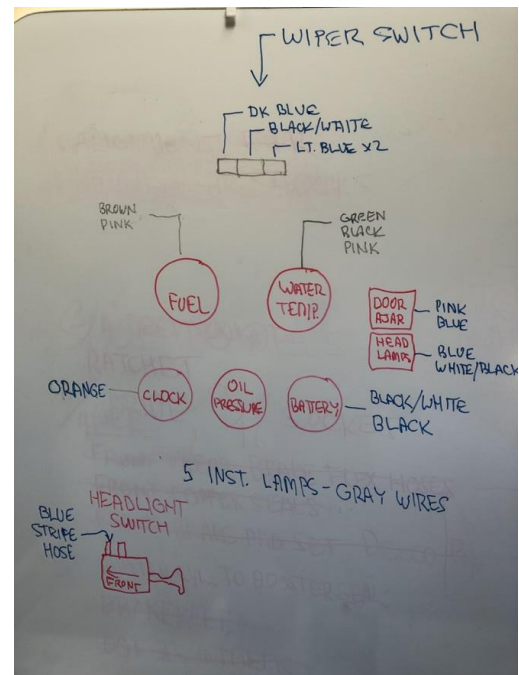 WIPER SWITCH
DK BLUE
BLACK/WHITE
LT. BLUE X2
BROWN
PINK
GREEN
BLACK
PINK
FUEL
WATER
TEMP.
DOOR
AJAR
PINK
BLUE
HEAD
LAMPS
BLUE
WHITE/BLACK
ORANGE
CLOCK
OIL
PRESSURE
BATTERY
BLACK/WHITE
BLACK
5 INST. LAMPS - GRAY WIRES
HEADLIGHT
SWITCH
BLUE
STRIPE
HOSE
FRONT